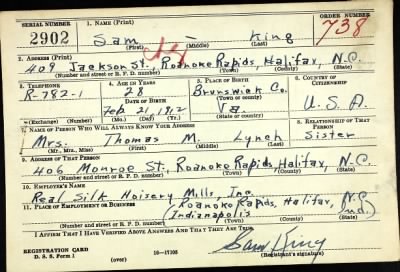 SERIAL NUMBER 1. NAME (Print) ORDER NUMBER
2902 Sam — King 738
(First) (Middle) (Last)
2. ADDRESS (Print)
409 Jackson St. Roanoke Rapids, Halifax, N.C.
(Number and street or R. F. D. number) (Town) (County) (State)
3. TELEPHONE 4. AGE IN YEARS 5. PLACE OF BIRTH 6. COUNTRY OF CITIZENSHIP
R-782-1 28 Brunswick Co.
DATE OF BIRTH (Town or county)
Feb 21, 1912 Va. U.S.A.
(Exchange) (Number) (Mo.) (Day) (Yr.) (State or country)
7. NAME OF PERSON WHO WILL ALWAYS KNOW YOUR ADDRESS 8. RELATIONSHIP OF THAT PERSON
Mrs. Thomas M. Lynch Sister
(Mr., Mrs., Miss) (First) (Middle) (Last)
9. ADDRESS OF THAT PERSON
406 Monroe St., Roanoke Rapids Halifax, N.C.
(Number and street or R. F. D. number) (Town) (County) (State)
10. EMPLOYER'S NAME
Real Silk Hoisery Mills, Inc.
11. PLACE OF EMPLOYMENT OR BUSINESS (Roanoke Rapids, Halifax, N.C.
(Indianapolis Ind.)
(Number and street or R. F. D. number) (Town) (County) (State)
I AFFIRM THAT I HAVE VERIFIED ABOVE ANSWERS AND THAT THEY ARE TRUE.
REGISTRATION CARD
D. S. S. Form 1 (over) 16—17105 Sam King
(Registrant's signature)